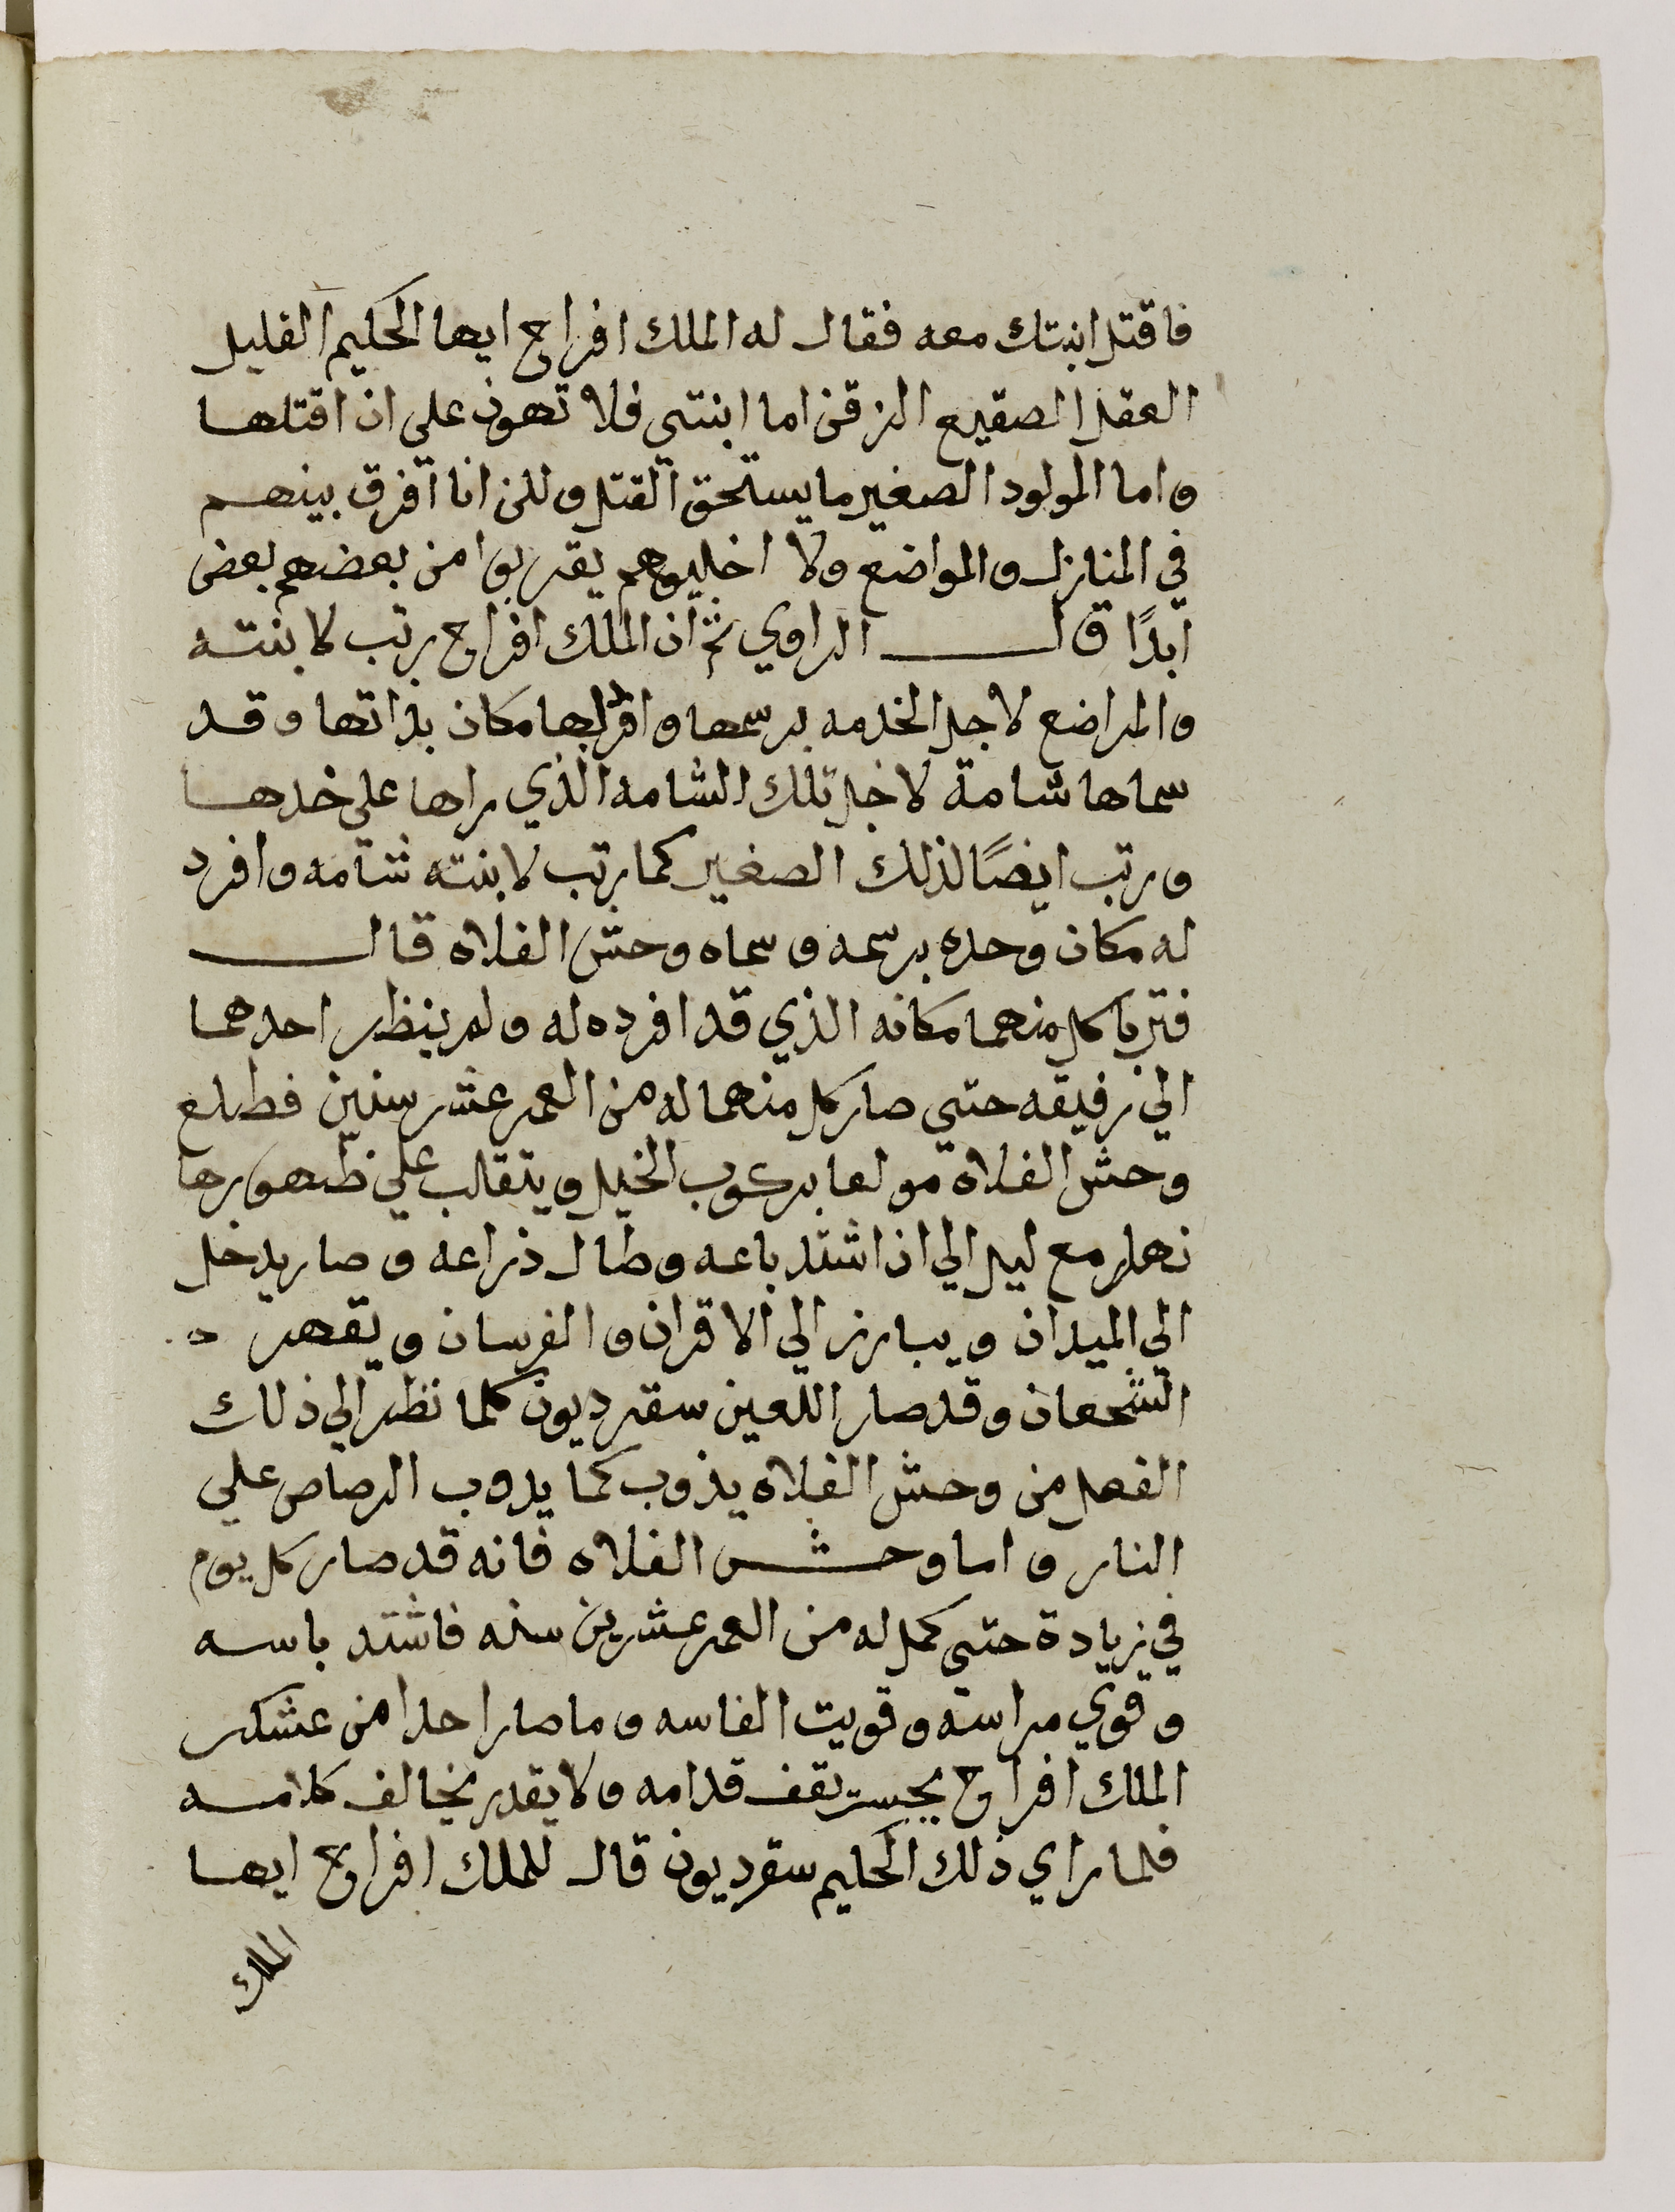 فاقتل ابنتك معه فقال له الملك افراح ايها الحكيم القليل
العقل الصقيع الذقن اما ابنتي فلا تهون علي ان اقتلها
واما المولود الصغير ما يستحق القتل ولكن انا افرق بينهم
في المنازل والمواضع ولا اخليوهم يقربوا من بعضهم بعض
ابدًا قال الراوي ثم ان الملك افراح رتب لابنته
والمراضع لاجل الخدمه برسمها وافرد لها مكان بذاتها وقد
سماها شامة لاجل تلك الشامه الذي راها علي خدها
ورتب ايضًا لذلك الصغير كما رتب لابنته شامه وافرد
له مكان وحده برسمه وسماه وحش الفلاه قال
فتربا كل منهما مكانه الذي قد افرده له ولم ينظر احدهما
الي رفيقه حتي صار كل منهما له من العمر عشر سنين فطلع
وحش الفلاة مولعا بركوب الخيل ويتقالب علي ظهورها
نهار مع ليل الي ان اشتد باعه وطال ذراعه وصار يدخل
الي الميدان ويبارز الي الاقران والفرسان ويقهر
الشجعان وقد صار اللعين سقرديون كلما نظر الي ذلك
الفعل من وحش الفلاه يذوب كما يدوب الرصاص علي
النار واما وحش الفلاه فانه قد صار كل يوم
في زيادة حتي كمل له من العمر عشرين سنه فاشتد باسه
وقوي مراسه وقويت انفاسه وما صار احدا من عشكر
الملك افراح يجسر يقف قدامه ولا يقدر يخالف كلامه
فلما راي ذلك الحكيم سقرديون قال للملك افراح ايها
الملك